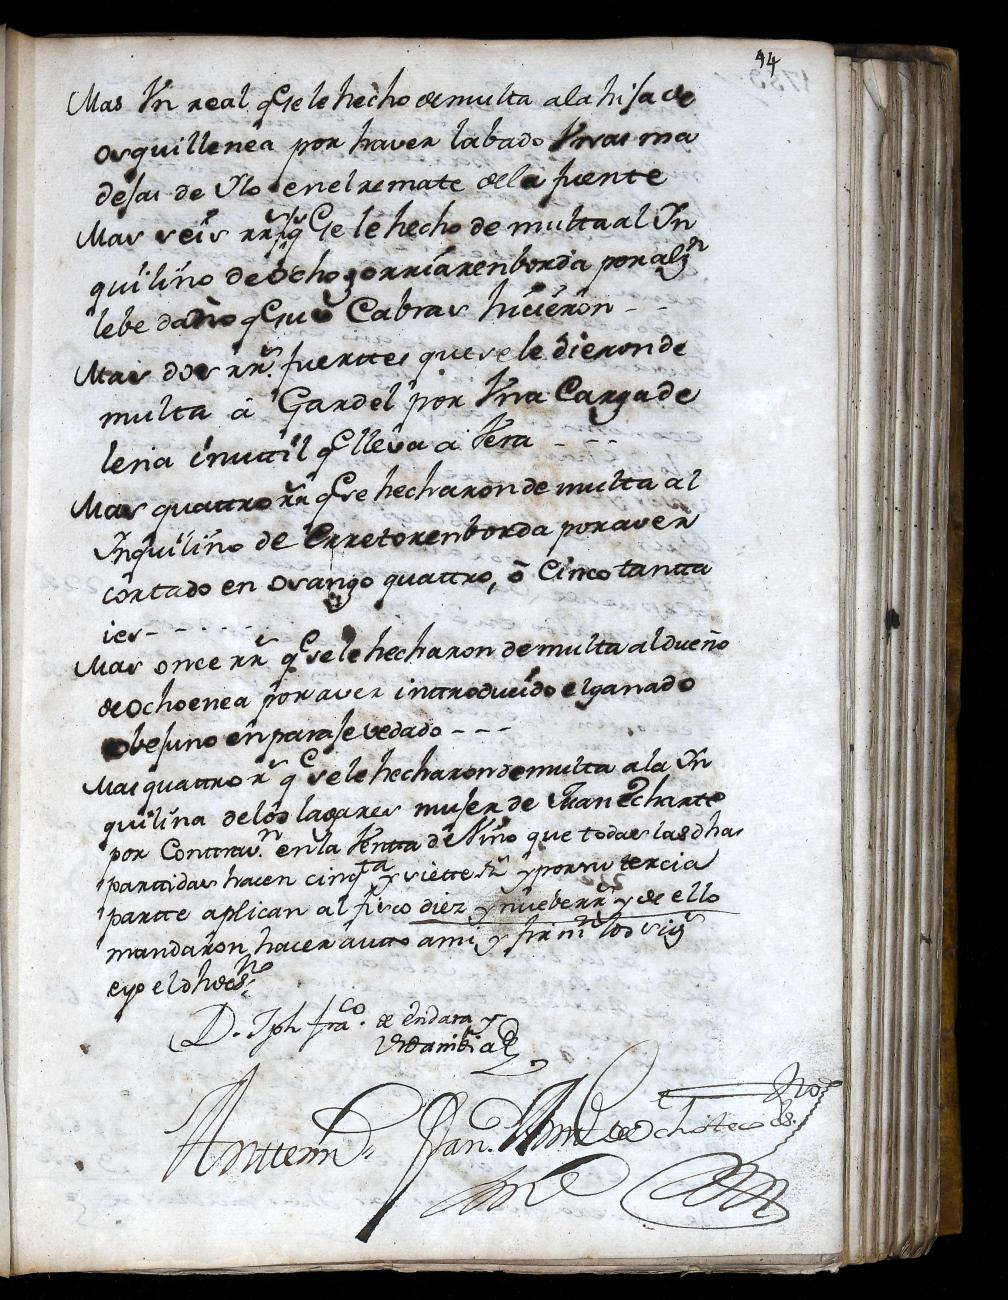 44
Mas Vn real q̃ se le hecho de multa a la hija de
osquillenea por haver labado Vnas ma
dejas de Ylo en el remate de la fuente
Mas seis rr.s q̃ se le hecho de multa al Yn
quilino de ochogorriarenborda por alg.n
lebe daño q̃ sus Cabras hicieron - -
Mas dos rr.s fuerttes que se le dieron de
multa â Gardel por Vna Carga de
lena inuttil q̃ lleva â Vera - - -
Mas quattro rr.s q̃ se hecharon de multa al
Ynquilino de Erretorenborda por aver
cortado en osango quattro, ô Cinco tantta
ies - - - - -
Mas once rr.s q̃ se le hecharon de multa al dueño
de ochoenea por aver inttroducido el ganado
obejuno en paraje vedado - - -
Mas quattro r.s q̃ se le hecharon de multa a la Yn
quilina de los lagares mujer de Juan Echarte
por Conttrav.n en la Ventta de Vino que todas las dhas
parttidas hacen cinq.ta y siette rr.s y por su tercia
partte aplican al fisco diez y nuebe rr.s y de ello
mandaron hacer autto a mi y firm.n los
e yo el dho es.no
D. Jph fra.co de Endara y
Anttemi Juan
es.no